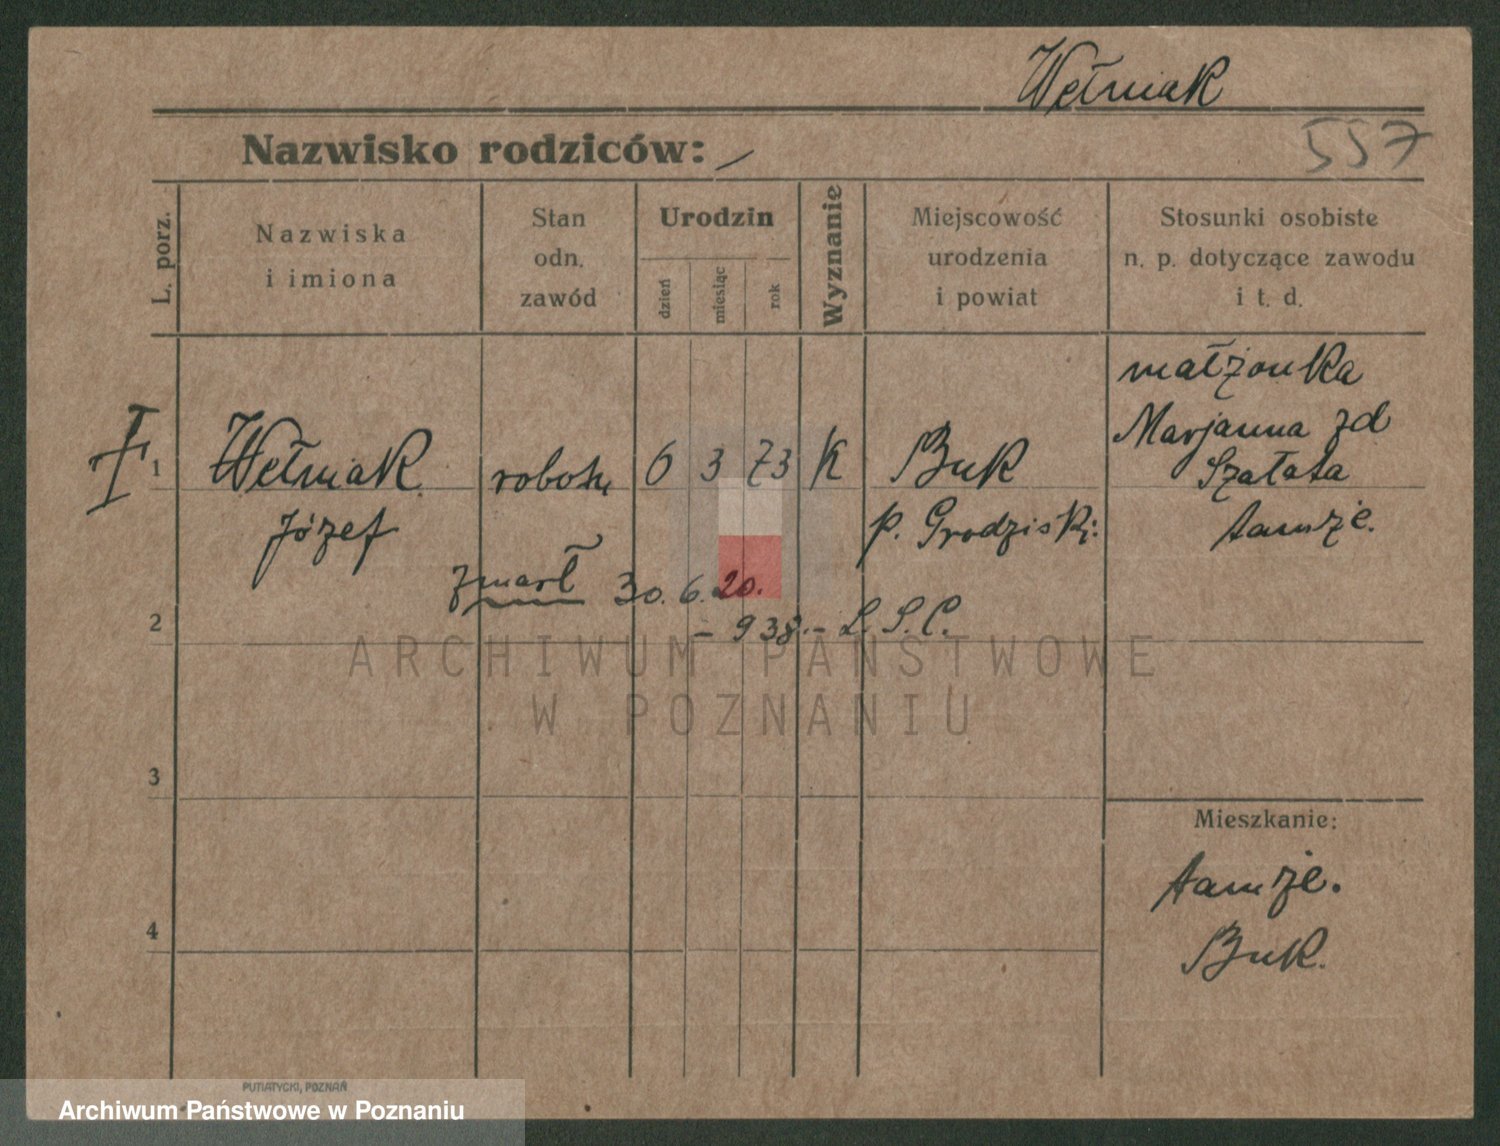 Wełniak
Nazwisko rodziców: /
557
L. porz.
Nazwiska
i imiona
Stan
odn.
zawód
Urodzin
dzień
miesiąc
rok
Wyznanie
Miejscowość
urodzenia
i powiat
Stosunki osobiste
n. p. dotyczące zawodu
i t. d.
1
Wełniak
Józef
robotn
6 3 73
K
Buk
p. Grodziski:
małżonka
Marjanna zd
Szałata
tamże.
zmarł 30. 6. 20.
- 938.- L. S. C.
2
ARCHIWUM PAŃSTWOWE
W POZNANIU
3
Mieszkanie:
tamże.
Buk.
4
PUTIATYCKI, POZNAŃ
Archiwum Państwowe w Poznaniu